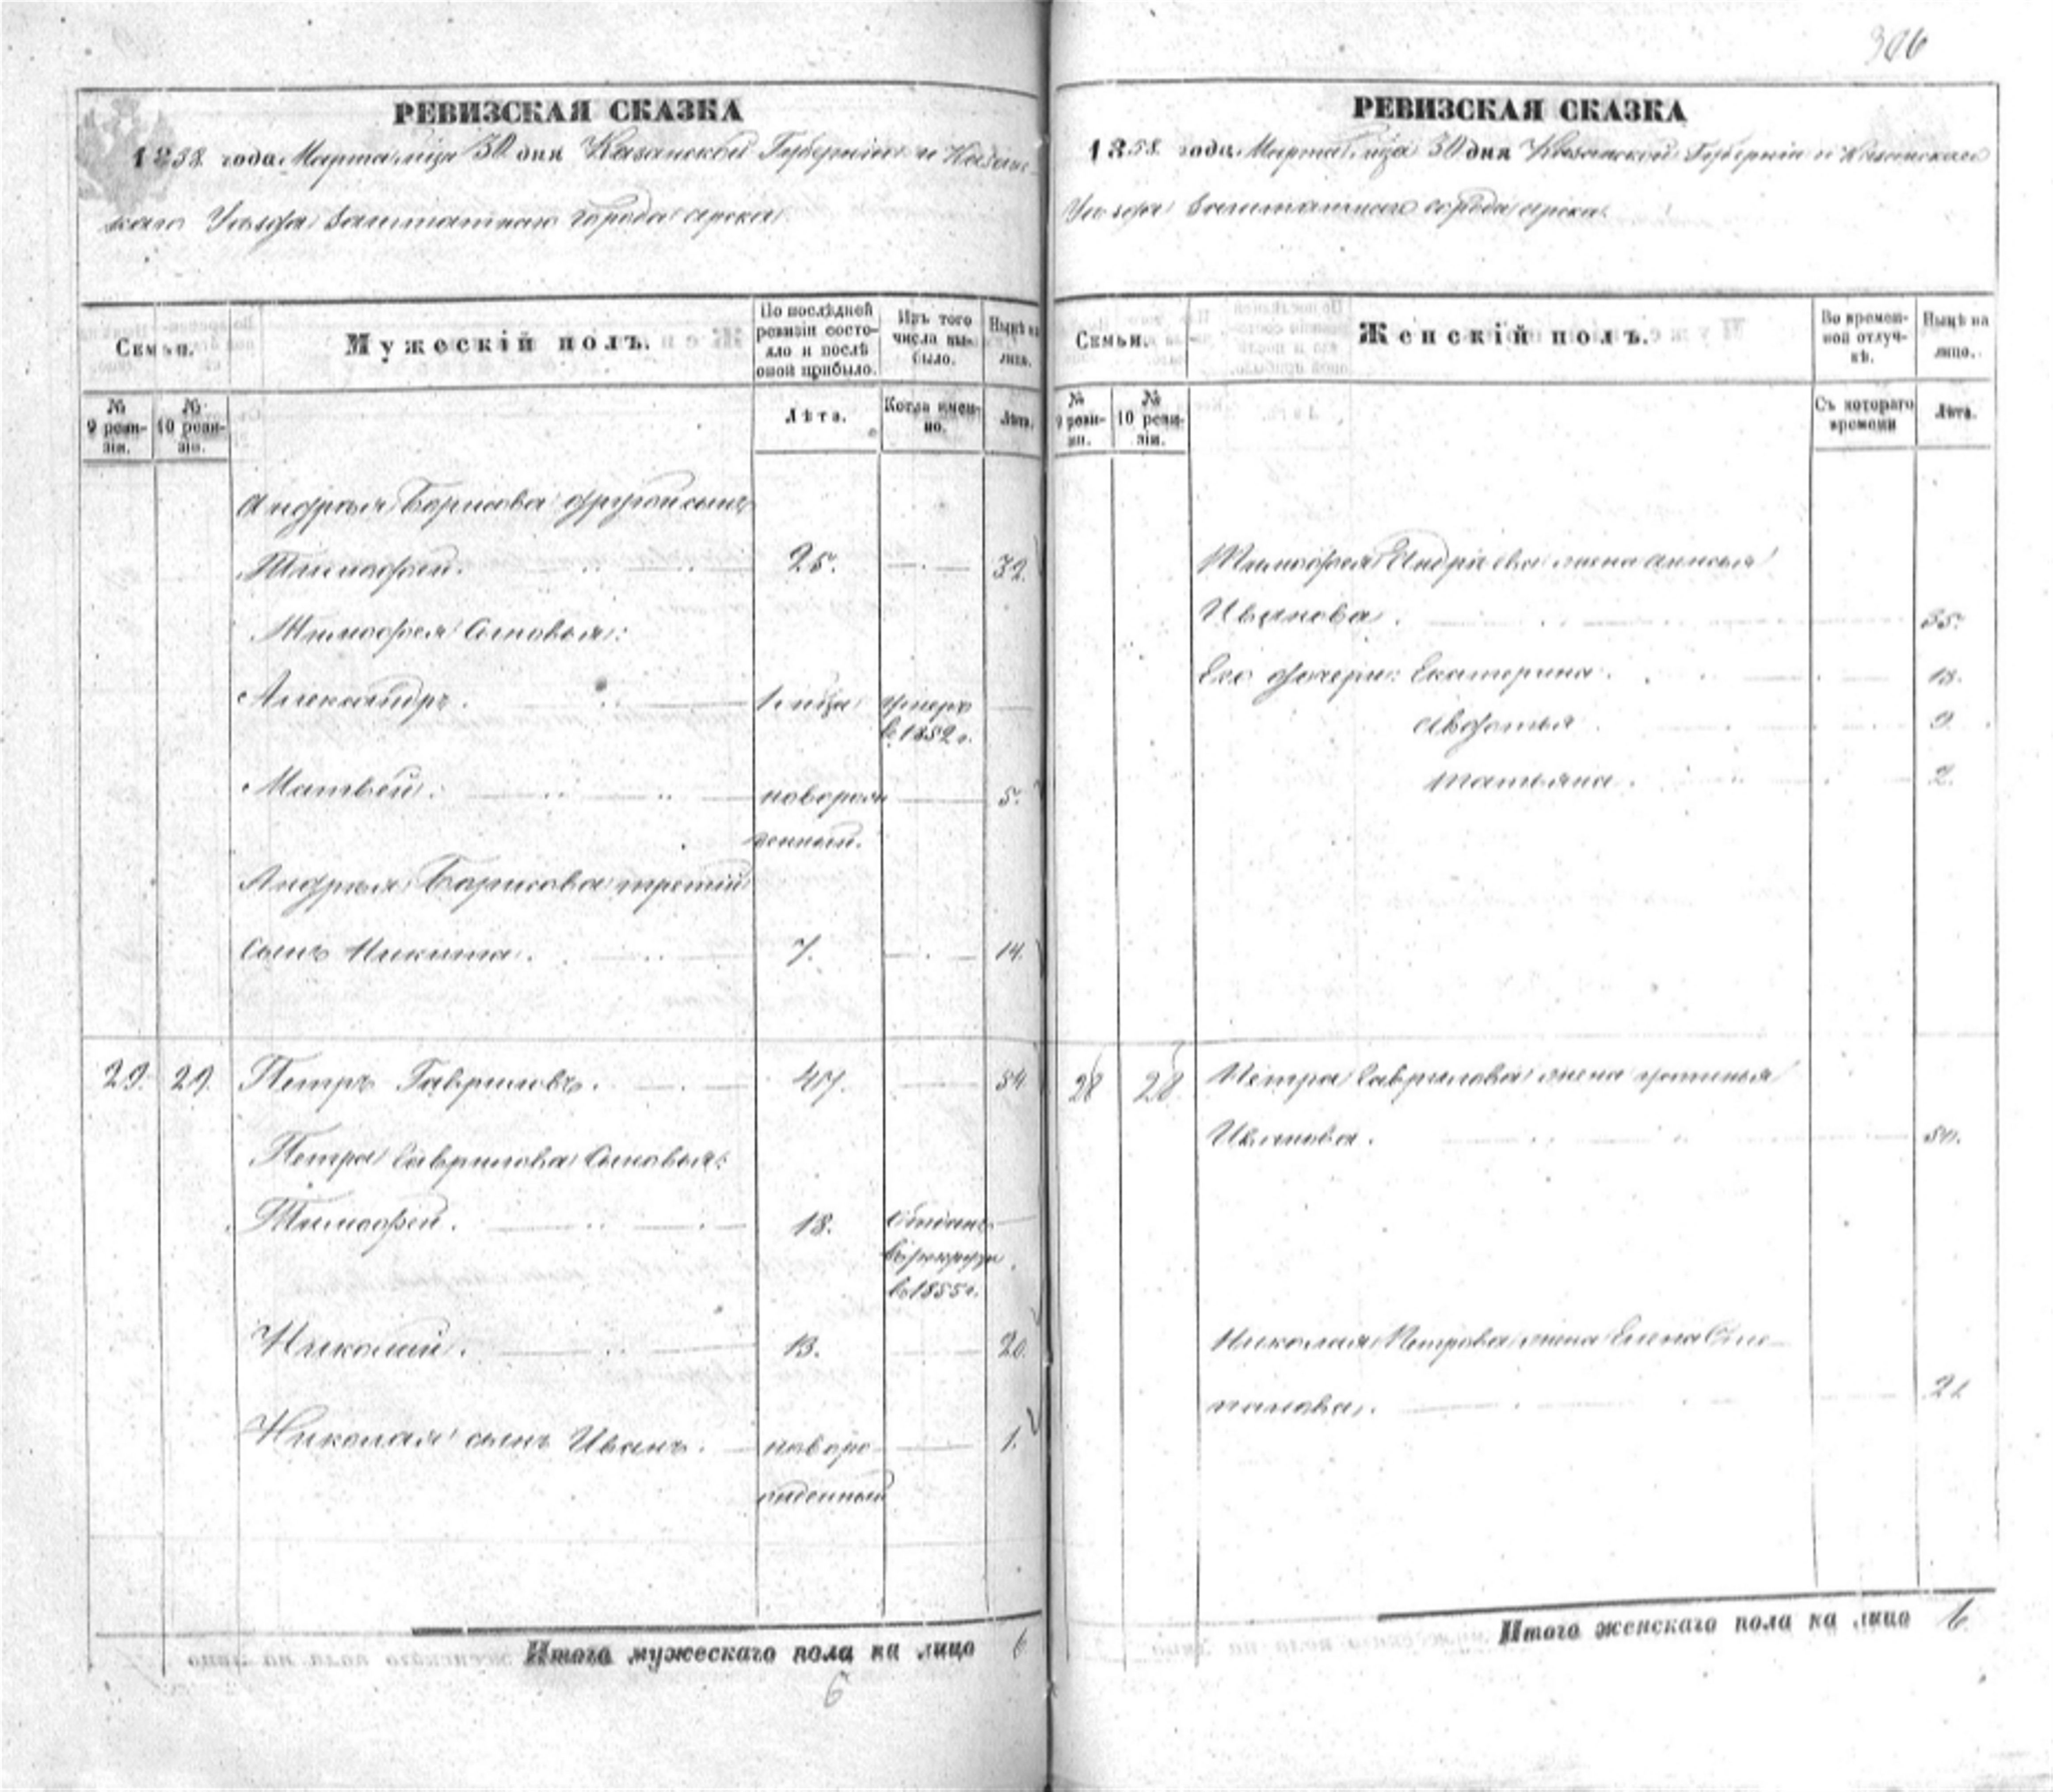 306
РЕВИЗСКАЯ СКАЗКА
1858 года Марта м-ца 30 дня Казанской Губернии и Казан-
скаго Уѣзда Заштатнаго города Арска.
Семьи.
Мужескій полъ.
По послѣдней ревизіи состояло и послѣ оной прибыло.
Изъ того числа выбыло.
Нынѣ на лицо.
№ 9 ревизіи.
№ 10 ревизіи.
Лѣта.
Когда именно.
Лѣта.
Андрея Борисова другой сынъ
Тимофей. 25. 32.
Тимофея Сыновья:
Александръ. 1 м-ца умеръ
в 1852 г.
Матвей. новорож 5.
денный.
Андрея Борисова третій
Сынъ Никита. 7. 14.
29. 29. Петръ Гавриловъ. 47. 54.
Петра Гаврилова Сыновья:
Тимофей. 18. Отданъ
в рекруты
в 1855 г.
Николай. 13. 20.
Николая сынъ Иванъ. новоро 1.
жденный
Итого мужескаго пола на лицо 6
6
РЕВИЗСКАЯ СКАЗКА
1858 года Марта м-ца 30 дня Казанской Губерніи и Казанскаго
Уѣзда Заштатнаго города Арска.
Семьи.
Женскій полъ.
Во временной отлучкѣ.
Нынѣ на лицо.
№ 9 ревизіи.
№ 10 ревизіи.
Съ котораго времени
Лѣта.
Тимофея Андреева жена Анисья
Иванова. 35.
Его дочери: Екатерина. 13.
Авдотья 9.
Татьяна. 2.
28 28 Петра Гаврилова жена Устинья
Иванова. 50.
Николая Петрова жена Елена Сте-
панова. 21.
Итого женскаго пола на лицо 6